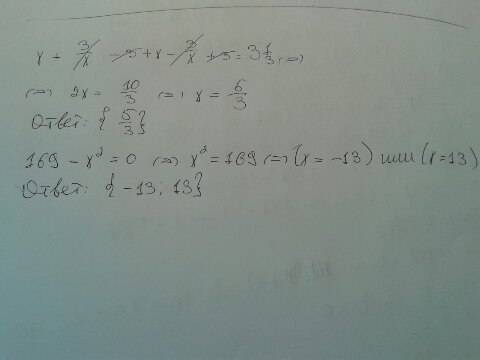 x + 3/x - 5 + x - 3/x + 5 = 3 1/3 <=>
<=> 2x = 10/3 <=> x = 5/3
Ответ: { 5/3 }
169 - x² = 0 <=> x² = 169 <=> (x = -13) или (x = 13)
Ответ: { -13; 13 }